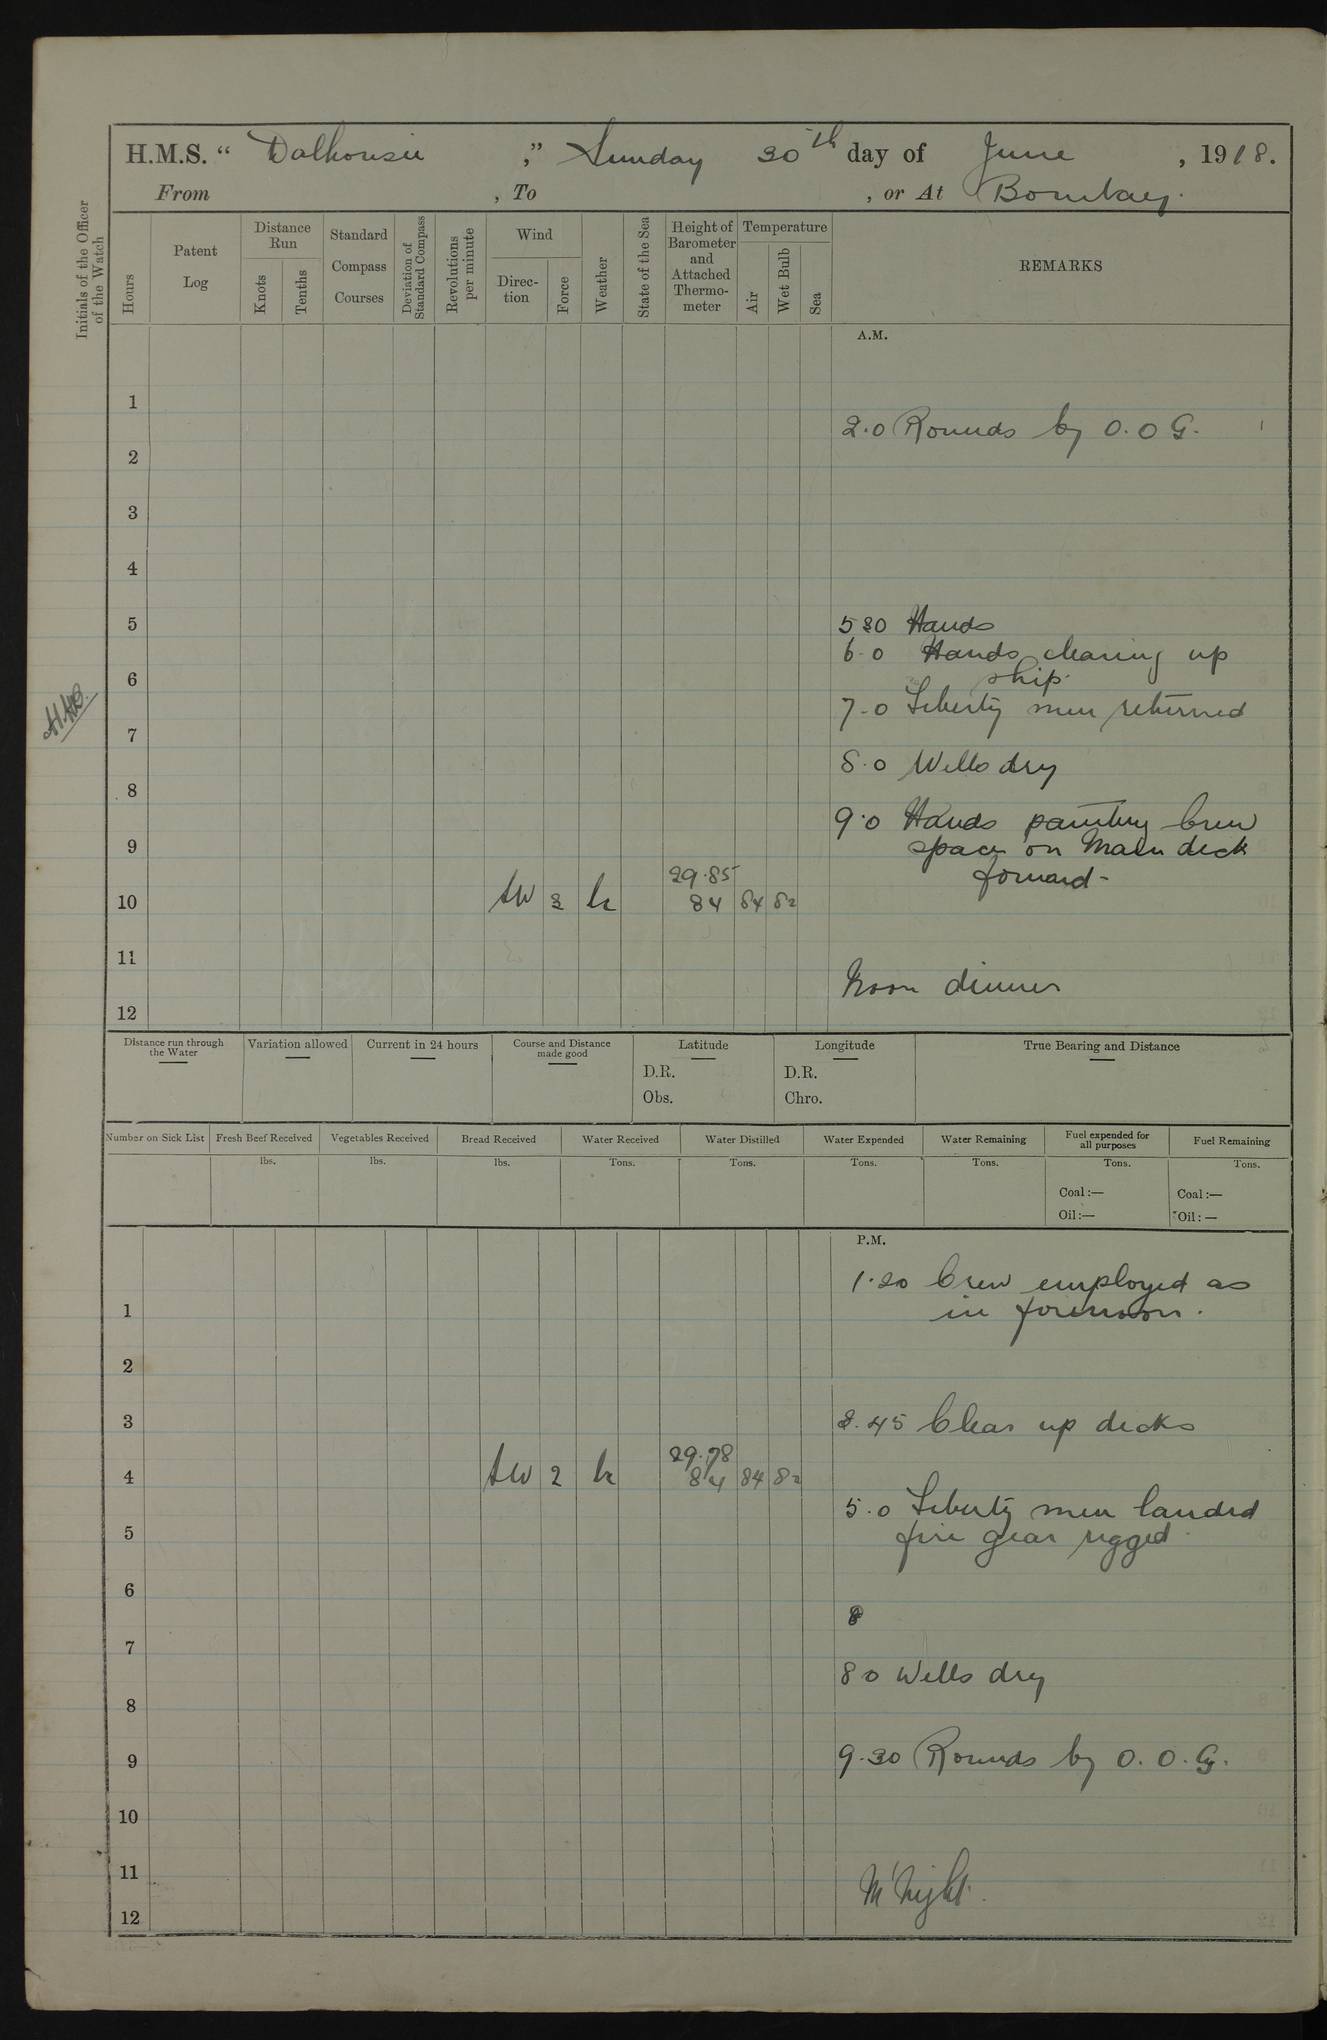 H.M.S. “ Dalhousie ,” Sunday 30th day of June , 1918.
From , To , or At Bombay.
Initials of the Officer
of the Watch
Hours
Patent
Log
Distance
Run
Knots
Tenths
Standard
Compass
Courses
Deviation of
Standard Compass
Revolutions
per minute
Wind
Direc-
tion
Force
Weather
State of the Sea
Height of
Barometer
and
Attached
Thermo-
meter
Temperature
Air
Wet Bulb
Sea
REMARKS
A.M.
1
2.0 Rounds by O.O G.
2
3
4
5 530 Hands
6.0 Hands clearing up
6 ship.
7.0 Liberty men returned
7
8.0 Wells dry
8
9.0 Hands painting Crew
9 space on Main deck
29.85 forward-
10 SW 3 84 84 82
11
Noon dinner
12
Distance run through
the Water
Variation allowed
Current in 24 hours
Course and Distance
made good
Latitude
D.R.
Obs.
Longitude
D.R.
Chro.
True Bearing and Distance
Number on Sick List
Fresh Beef Received
lbs.
Vegetables Received
lbs.
Bread Received
lbs.
Water Received
Tons.
Water Distilled
Tons.
Water Expended
Tons.
Water Remaining
Tons.
Fuel expended for
all purposes
Tons.
Coal :—
Oil :—
Fuel Remaining
Tons.
Coal :—
Oil : —
P.M.
1.20 Crew employed as
1 in forenoon.
2
3 3.45 Clear up decks
29.78
4 SW 2 84 84 82
5.0 Liberty men landed
5 fire gear rigged
6
8
7
8 0 Wells dry
8
9 9.30 Rounds by O.O.G.
10
11
M'Night.
12